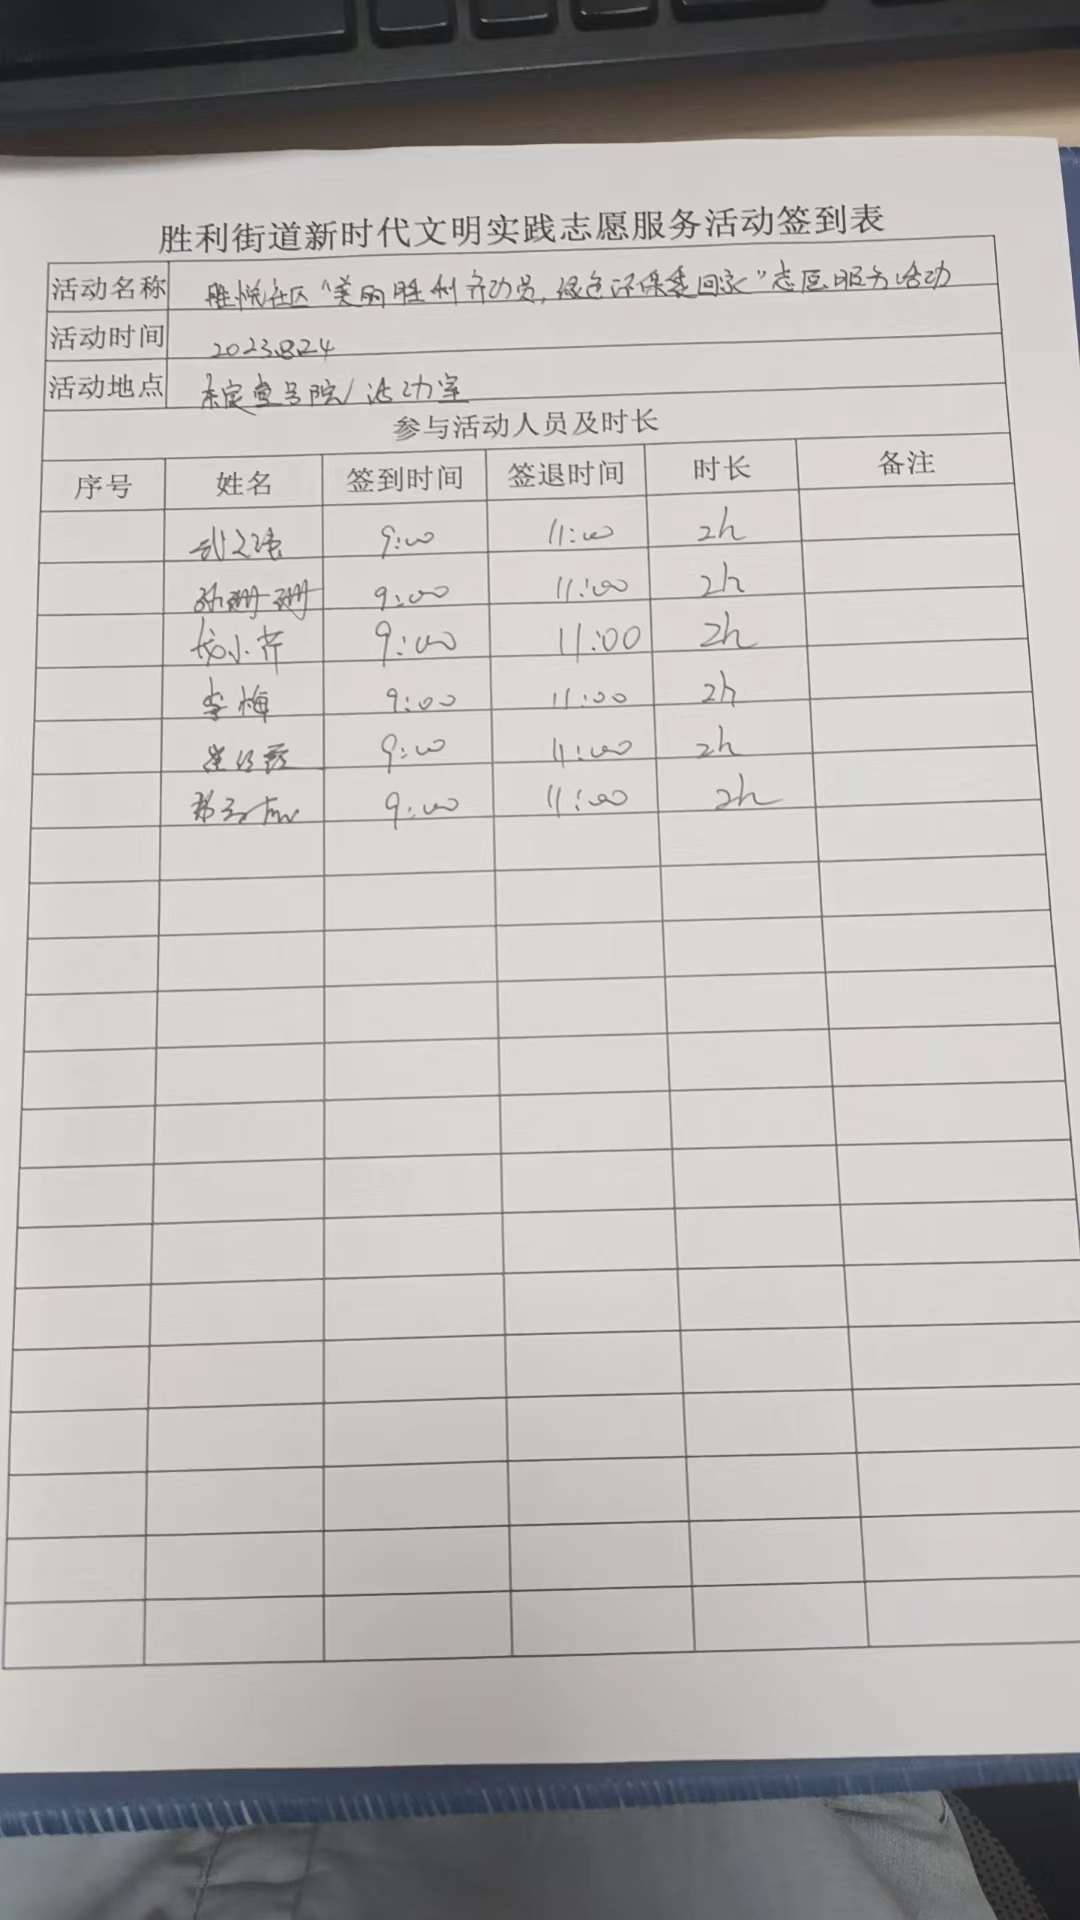 胜利街道新时代文明实践志愿服务活动签到表
活动名称 胜悦社区“美丽胜利齐动员,绿色环保秀回家”志愿服务活动
活动时间 2023.8.24
活动地点 壹号院/活动室
参与活动人员及时长
序号 姓名 签到时间 签退时间 时长 备注
9:00 11:00 2h
孙珊珊 9:00 11:00 2h
小芹 9:00 11:00 2h
李梅 9:00 11:00 2h
9:00 11:00 2h
9:00 11:00 2h